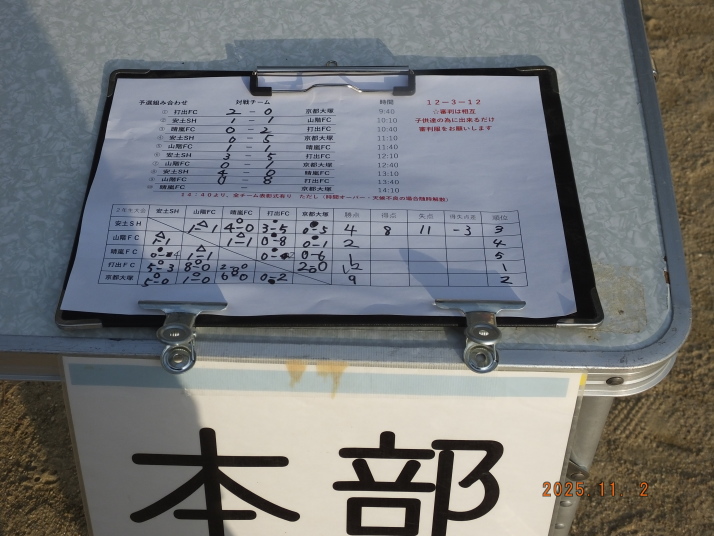 予選組み合わせ 対戦チーム 時間 12-3-12
① 打出FC 2 - 0 京都大塚 9:40 ☆審判は相互
② 安土SH 1 - 1 山階FC 10:10 子供達の為に出来るだけ
③ 晴嵐FC 0 - 2 打出FC 10:40 審判服をお願いします
④ 安土SH 0 - 5 京都大塚 11:10
⑤ 山階FC 1 - 1 晴嵐FC 11:40
⑥ 安土SH 3 - 5 打出FC 12:10
⑦ 山階FC 0 - 1 京都大塚 12:40
⑧ 安土SH 4 - 0 晴嵐FC 13:10
⑨ 山階FC 0 - 8 打出FC 13:40
⑩ 晴嵐FC - 京都大塚 14:10
14:40より、全チーム表彰式有り ただし(時間オーバー・天候不良の場合随時解散)
2年生大会 安土SH 山階FC 晴嵐FC 打出FC 京都大塚 勝点 得点 失点 得失点差 順位
安土SH △ 1-1 4-0 3-5 0-5 4 8 11 -3 3
山階FC △ 1-1 1-1 0-8 0-1 2 4
晴嵐FC 1-1 0-6 1 5
打出FC 5-3 8-0 2-0 12 1
京都大塚 5-0 1-0 0-2 9 2
本部
2025.11. 2